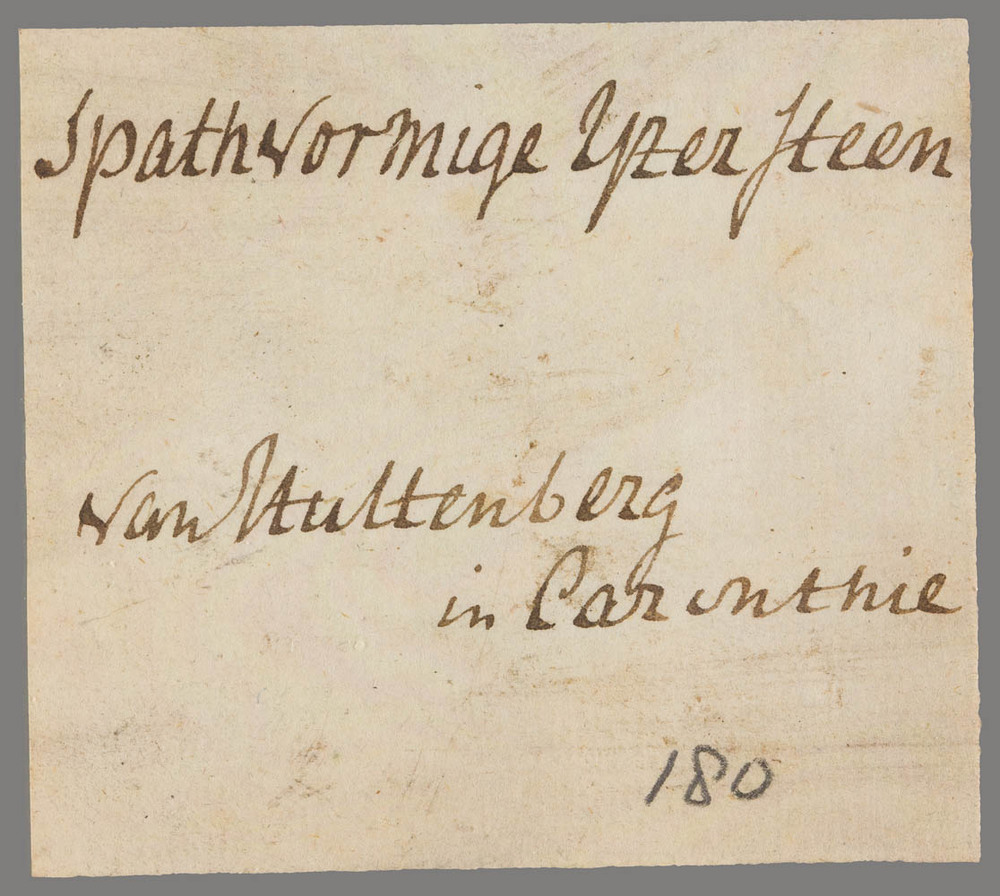 Spathvormige Yzer steen
van Huttenberg
in Caronthie
180